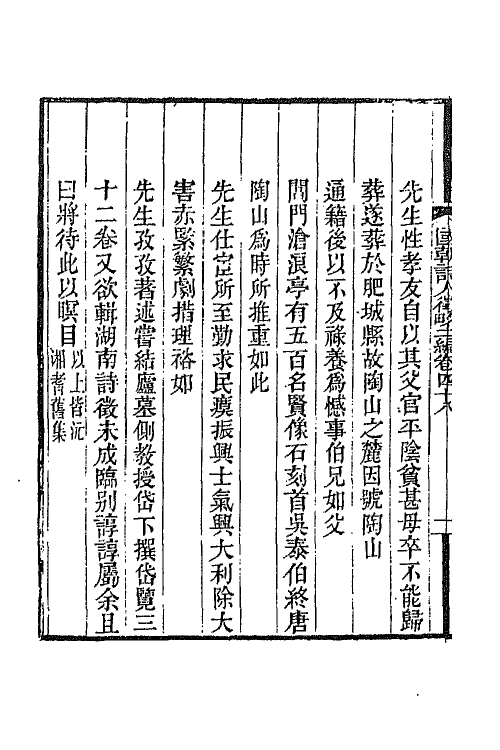 國朝詩人徵略二編卷四十六
先生性孝友自以其父官平陰貧甚母卒不能歸
葬遂葬於肥城縣故陶山之麓因號陶山
通籍後以不及祿養爲憾事伯兄如父
閶門滄浪亭有五百名賢像石刻首吳泰伯終唐
陶山爲時所推重如此
先生仕宦所至勤求民瘼振興士氣興大利除大
害赤緊繁劇措理裕如
先生孜孜著述嘗結廬墓側教授岱下撰岱覽三
十二卷又欲輯湖南詩徵未成臨別諄諄屬余且
曰將待此以瞑目以上皆沅
湘耆舊集